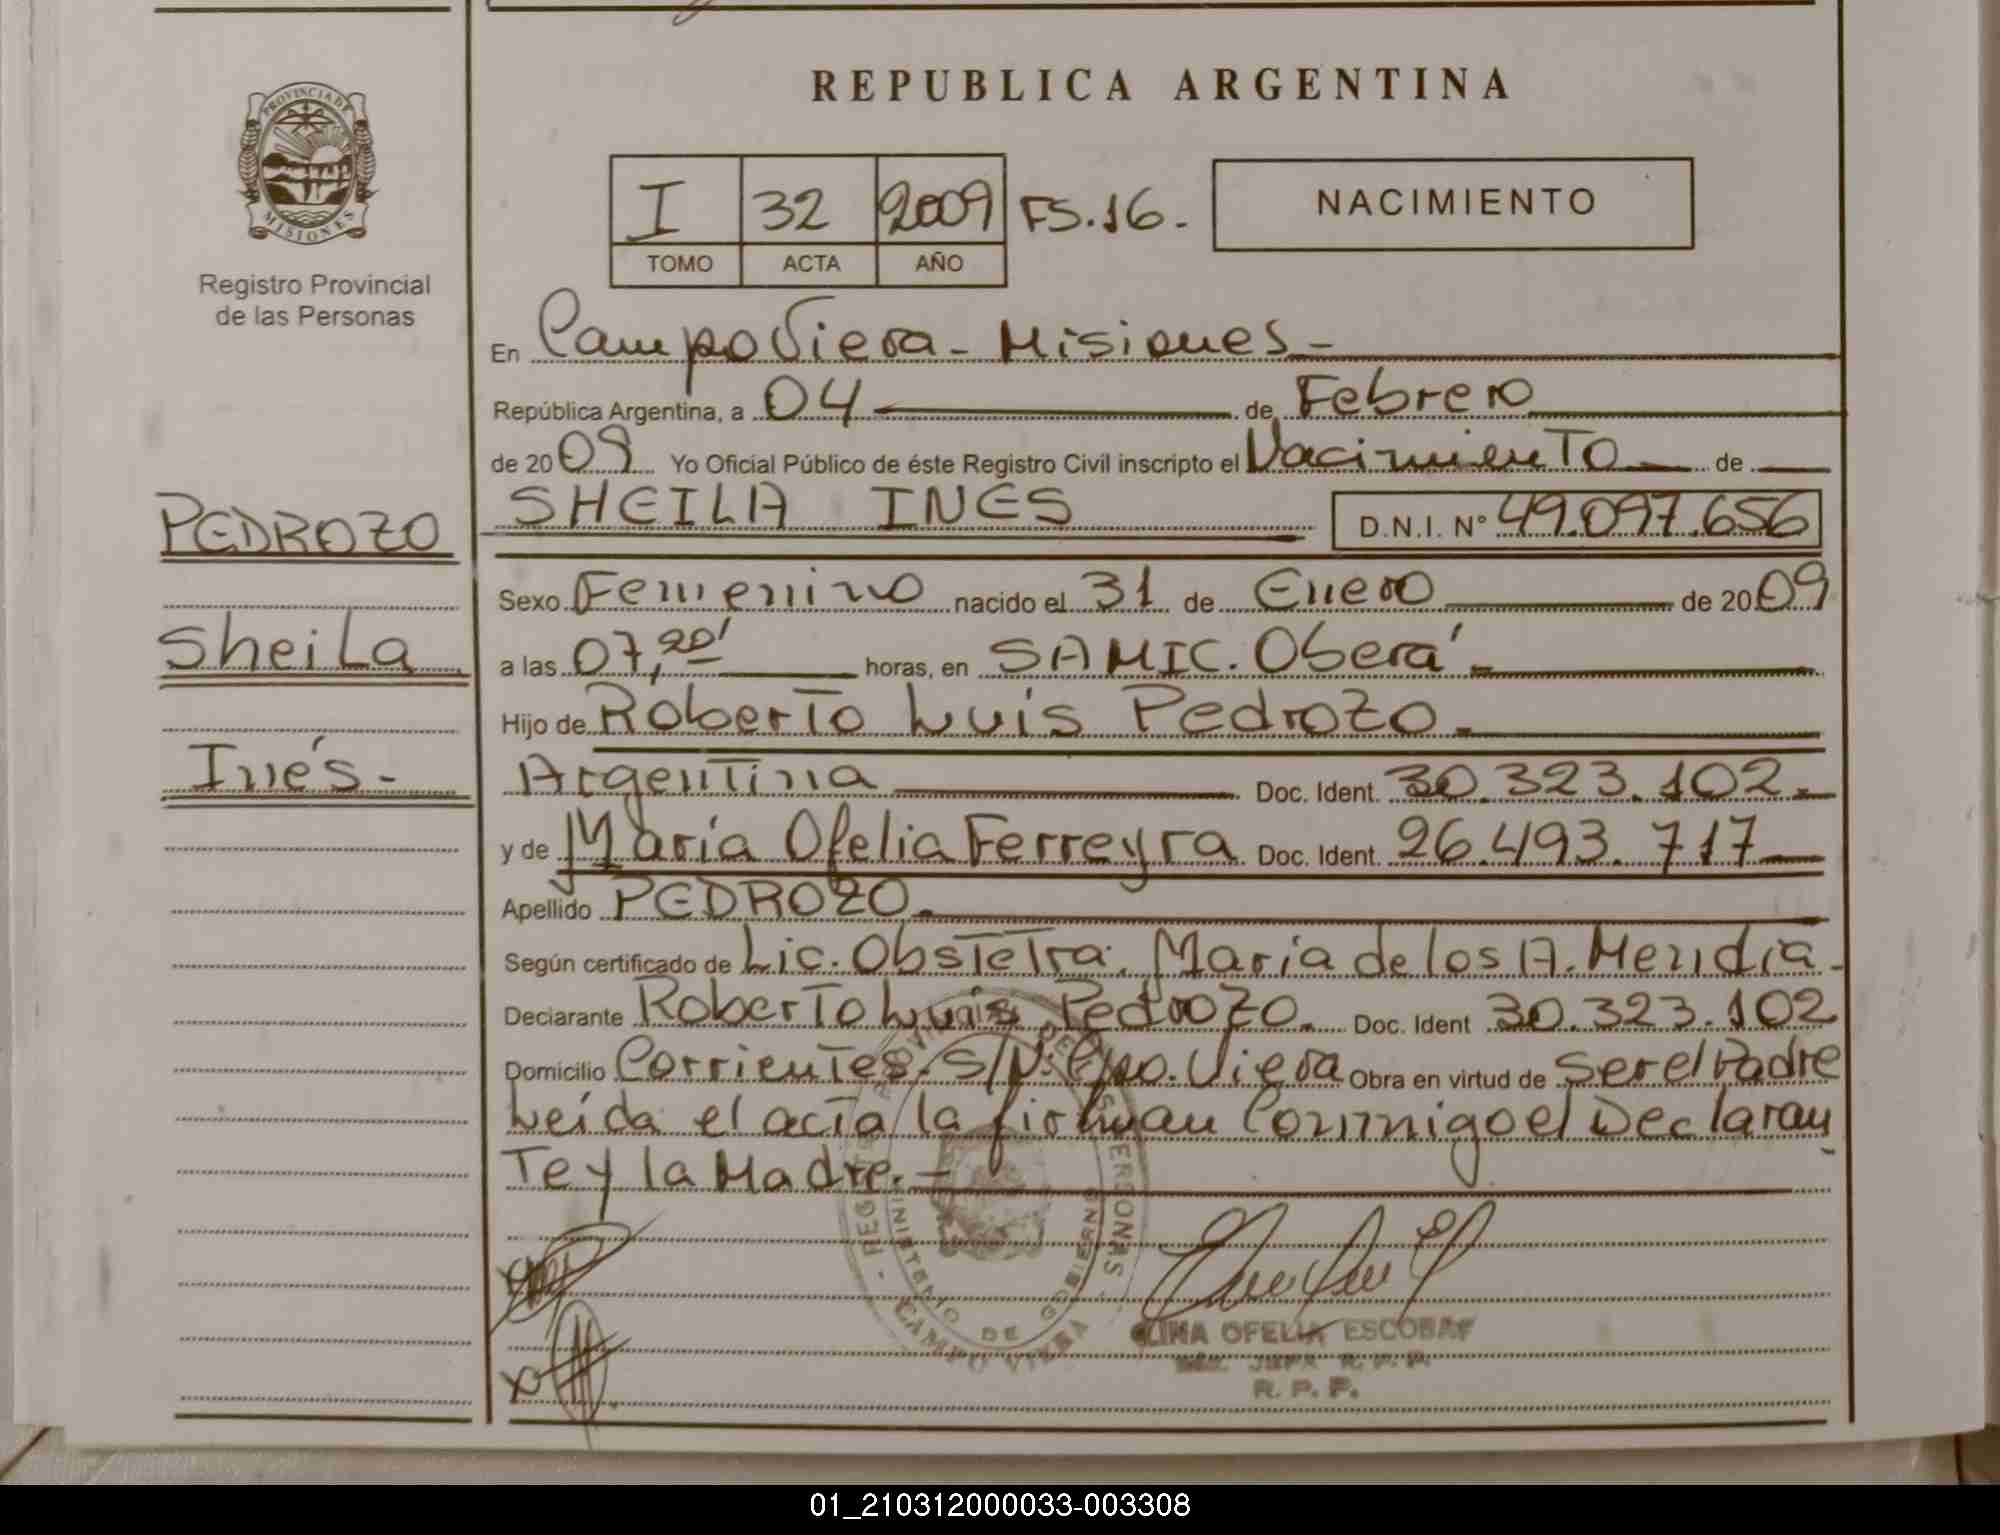 REPUBLICA ARGENTINA
PROVINCIA DE
MISIONES
Registro Provincial
de las Personas
I 32 2009 FS.16.-
TOMO ACTA AÑO
NACIMIENTO
En Campo Viera - Misiones -
República Argentina, a 04 de Febrero
de 2009 Yo Oficial Público de éste Registro Civil inscripto el Nacimiento de
SHEILA INES D.N.I. N° 49.097.656
PEDROZO
Sheila
Inés-
Sexo Femenino nacido el 31 de Enero de 2009
a las 07,20' horas, en SAMIC. Oberá.
Hijo de Roberto Luis Pedrozo.
Argentina Doc. Ident. 30.323.102.-
y de María Ofelia Ferreyra Doc. Ident. 26.493.717
Apellido PEDROZO.
Según certificado de Lic. Obstetra. María de los A. Mendia.
Declarante Roberto Luis Pedrozo. Doc. Ident 30.323.102
Domicilio Corrientes. S/N. Cpo. Viera Obra en virtud de Ser el Padre
Leída el acta la firman Conmigo el Declaran
Te y la Madre.-
MINISTERIO DE GOBIERNO
CAMPO VIERA
OFELIA ESCOBAR
R. P. P.
01_210312000033-003308